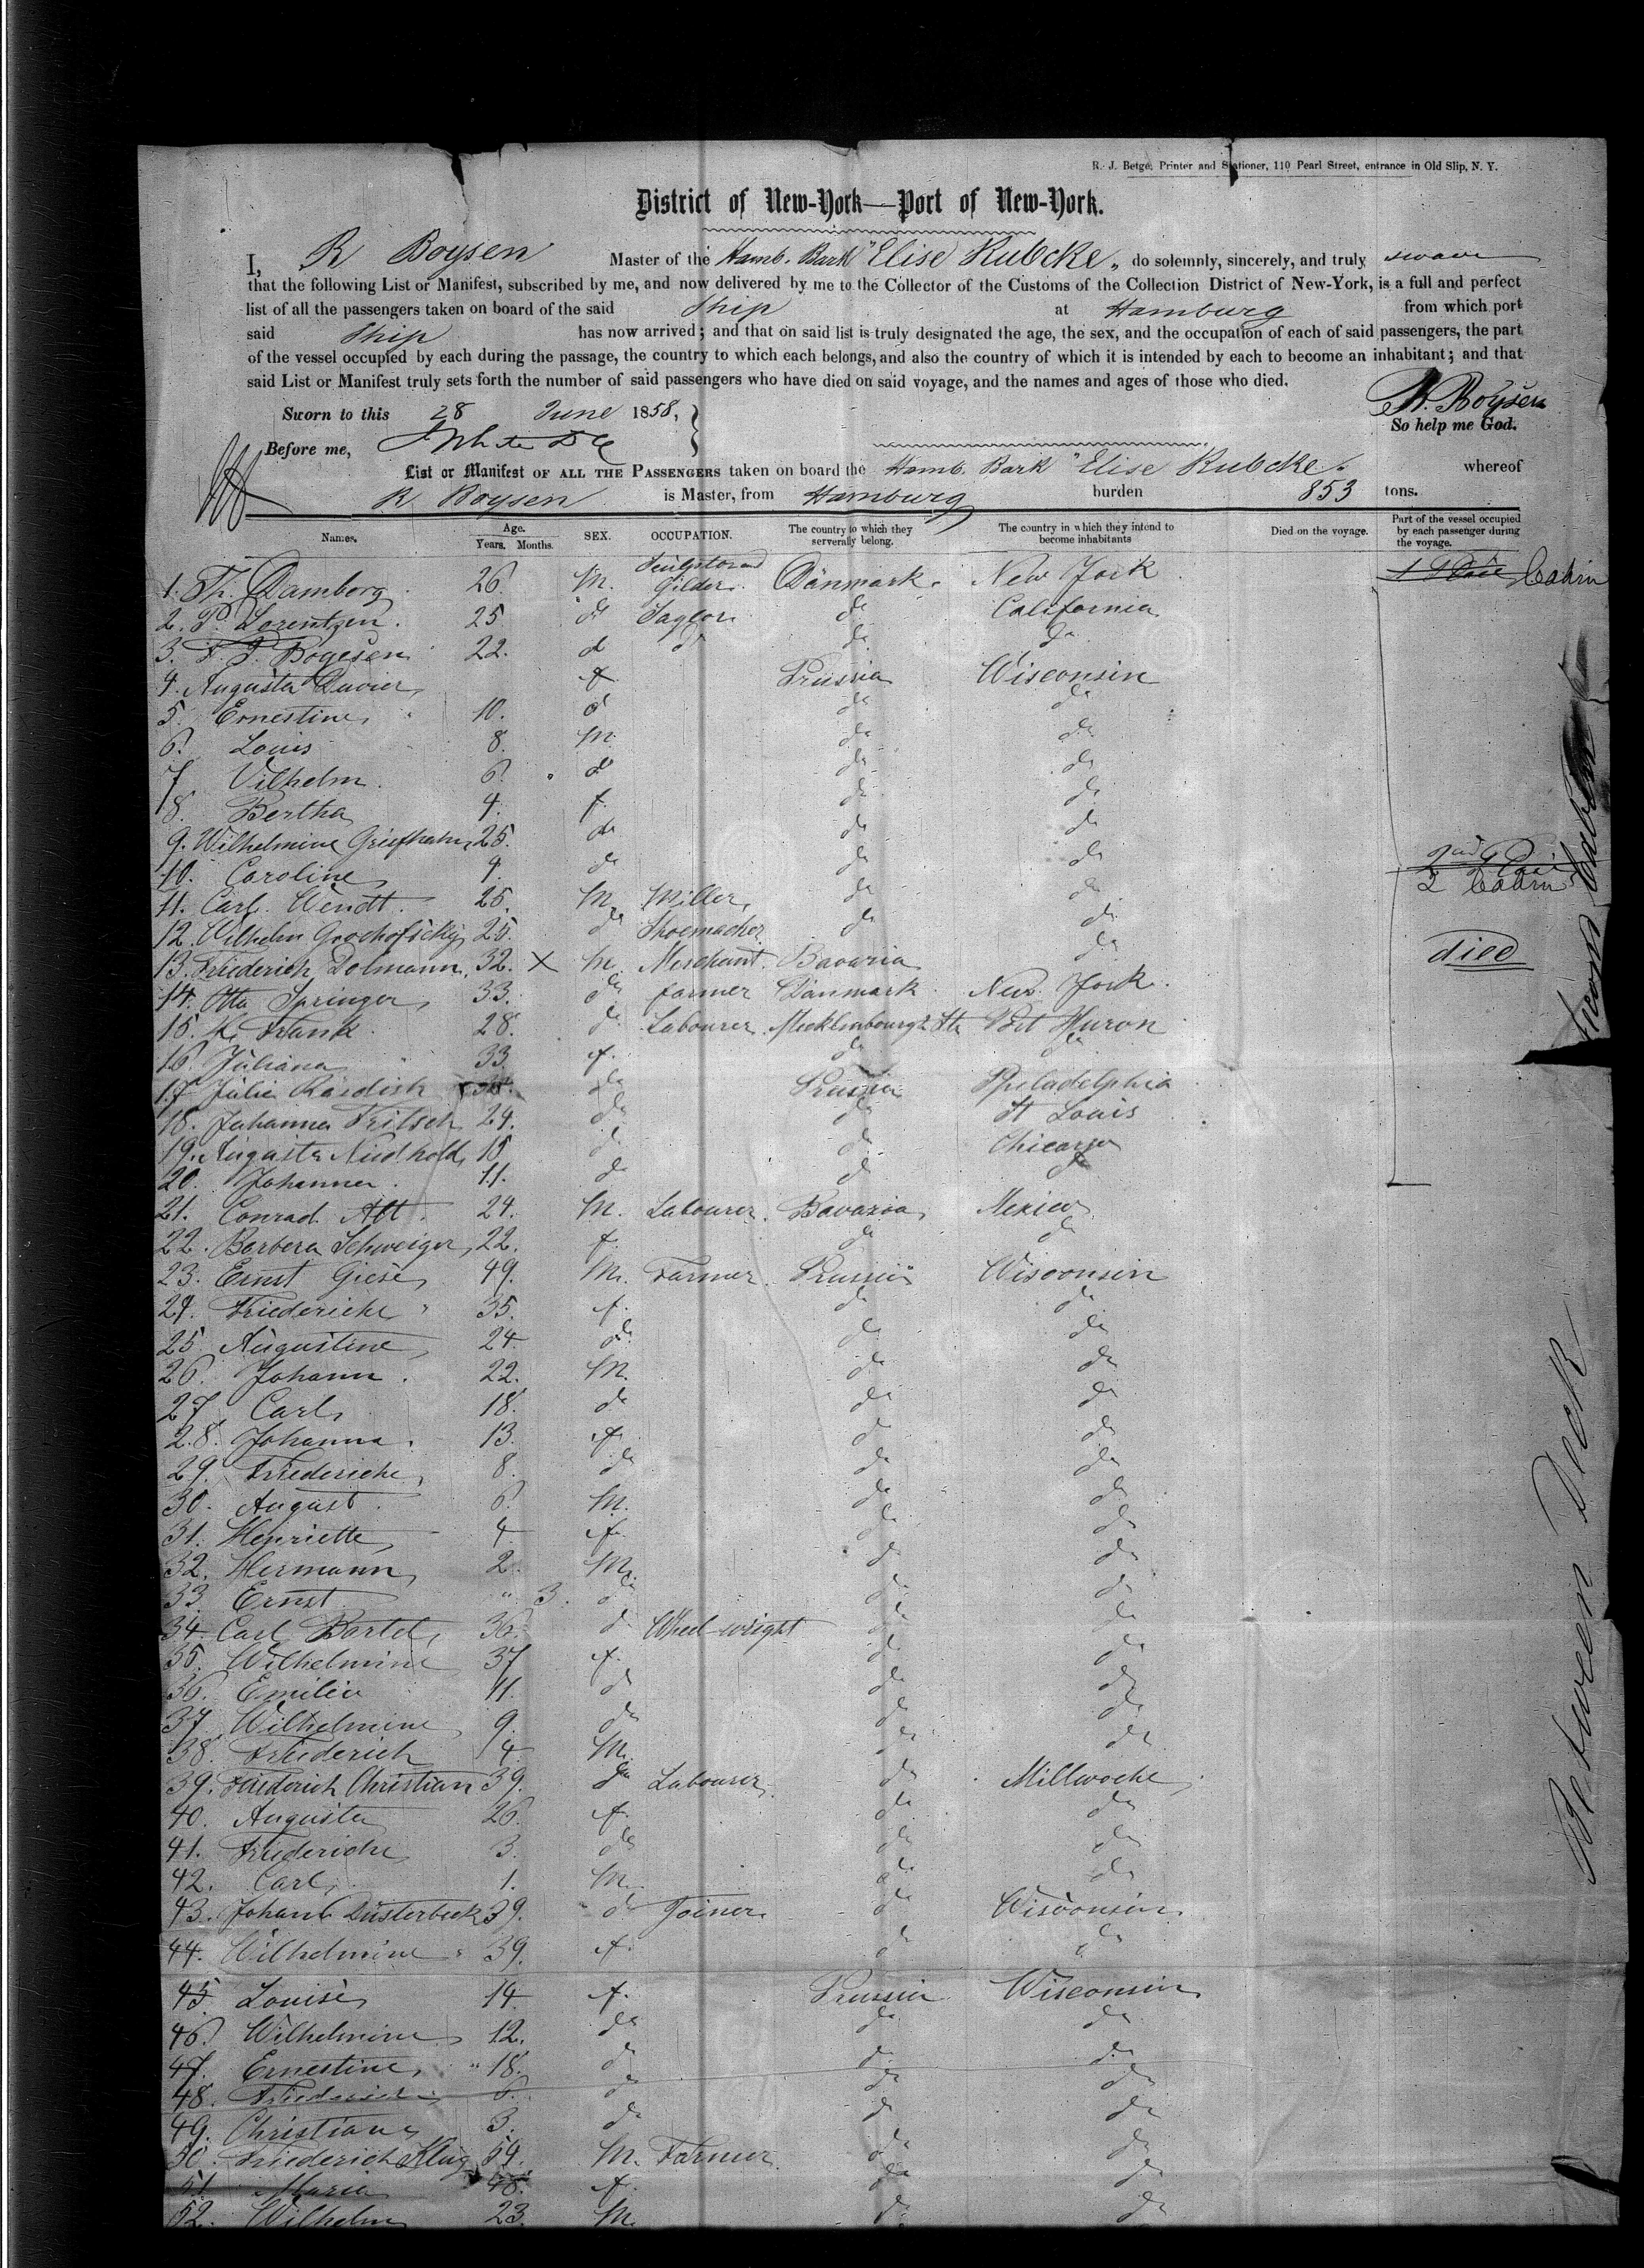 R. J. Betge, Printer and Stationer, 110 Pearl Street, entrance in Old Slip, N. Y.
District of New-York—Port of New-York.
I, R Boysen Master of the Hamb. Bark "Elise Rubcke" do solemnly, sincerely, and truly swear
that the following List or Manifest, subscribed by me, and now delivered by me to the Collector of the Customs of the Collection District of New-York, is a full and perfect
list of all the passengers taken on board of the said Ship at Hamburg from which port
said Ship has now arrived; and that on said list is truly designated the age, the sex, and the occupation of each of said passengers, the part
of the vessel occupied by each during the passage, the country to which each belongs, and also the country of which it is intended by each to become an inhabitant; and that
said List or Manifest truly sets forth the number of said passengers who have died on said voyage, and the names and ages of those who died.
R. Boysen
Sworn to this 28 June 1858,
So help me God.
Before me, White
List or Manifest OF ALL THE PASSENGERS taken on board the Hamb. Bark "Elise Rubcke" whereof
R Boysen is Master, from Hamburg burden 853 tons.
Names. Age. Years. Months. SEX. OCCUPATION. The country to which they serverally belong. The country in which they intend to become inhabitants Died on the voyage. Part of the vessel occupied by each passenger during the voyage.
1. Th. Damborg 26. M. Gilder. Dänmark. New York Cabin
2. P. Lorentzen. 25 do Taylor. do California
3. F. P. Bogesen 22. do do do do
4. Augusta Duvier, f. Prussia Wisconsin
5. Ernestine, " 10. do do do
6. Louis 8. M. do do
7 Vilhelm. 6. do do do
8. Bertha 4. f. do do
9. Wilhelmine 25. do do do
10. Caroline 4. do do do 2 Cabin
11. Carl. Wendt. 25. M. Miller, do do
12. Wilhelm 25. do Shoemacher do do
13. Friederich Dolmann, 32. X M. Merchant. Bavaria do died
14. Otto Springer, 33. do farmer Dänmark New York.
15. Frank 28. do Labourer. Port Huron
16. Juliana " 33. f. do do
17 Julie do Prussia Philadelphia
18. Johanna Fritsch 24. do do St Louis
19. Augusta do do Chicargo
20. Johanna. 11. do do do
21. Conrad Alt. 24. M. Labourer. Bavaria, Mexico
22. Barbera Schweiger, 22. f. do do
23. Ernst Giese, 49. M. Farmer. Prussia Wisconsin
24. Friederiche " 35. f. do do
25 Augustine, 24. do do do
26. Johann. 22. M. do do
27 Carl, 18. do do do
28. Johanna. 13. f. do do
29. Friederiche, 8. do do do
30. August. 6. M. do do
31. Henriette, 4 f. do do
32. Hermann, 2. M. do do
33. Ernst. " 3. do do do
34. Carl Bartel, 36. do Wheel-wright do do
35. Wilhelmine 37 f. do do
36. Emilie 11. do do do
37. Wilhelmine 9. do do do
38. Friederich 4. M. do do
39. Friederich Christian 39. do Labourer. do Millwocke
40. Augusta 26. f. do do
41. Friederiche 3. do do do
42. Carl, 1. M. do do
43. Johann Düsterbeck 39. do Joiner. do Wisconsin
44. Wilhelmine " 39. f. do do
45 Louise, 14. f. Prussia Wisconsin
46. Wilhelmine 12. do do do
47. Ernestine, " 18. do do do
48. 6. do do do
49. Christiane 3. do do do
50. Friederich Klug 54. M. Farmer. do do
51. Maria 48. f. do do
52. Wilhelm 23. M. do do
Between Deck